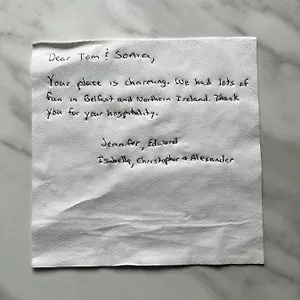 Dear Tom & Sonira,
Your place is charming. We had lots of
fun in Belfast and Northern Ireland. Thank
you for your hospitality.
Jennifer, Edward
Isabella, Christopher & Alexander